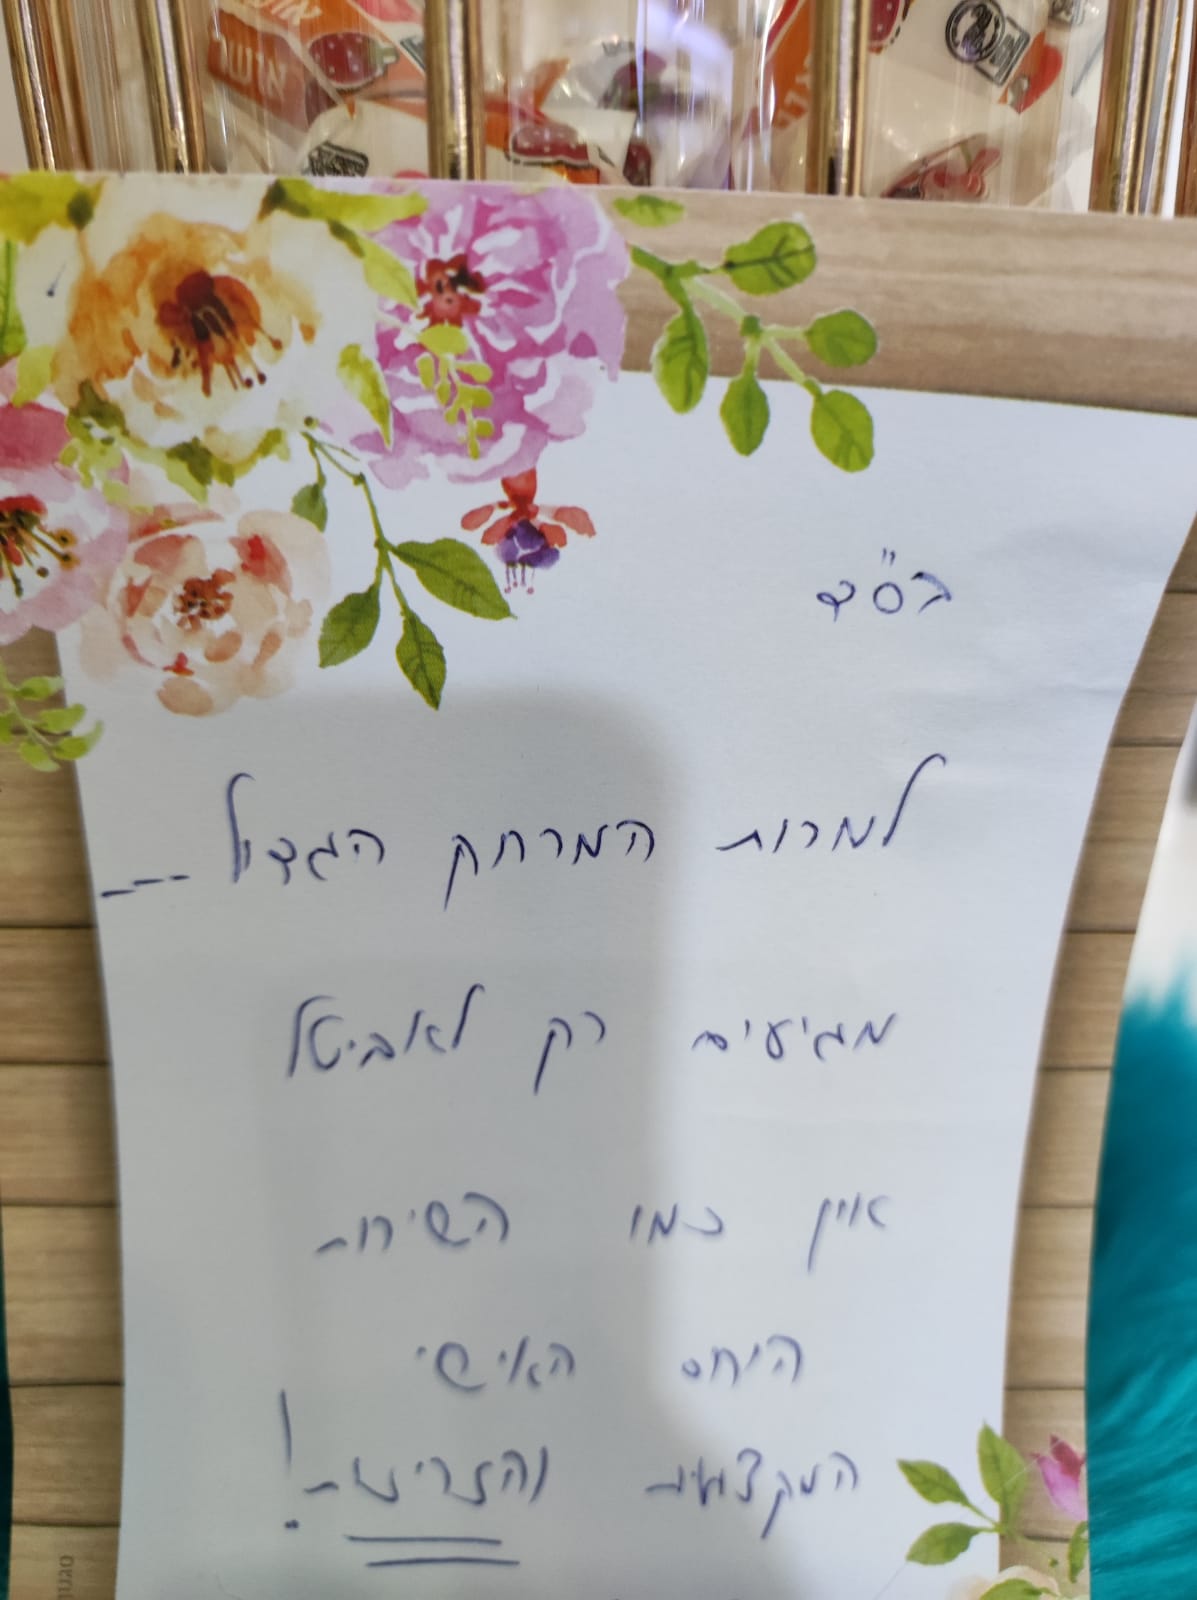 אושר
בס"ד
למרות המרחק הגדול ---
מגיעים רק לאביטל
אין כמו השירות
היחס האישי
המקצועיות והזריזות!
סגנון